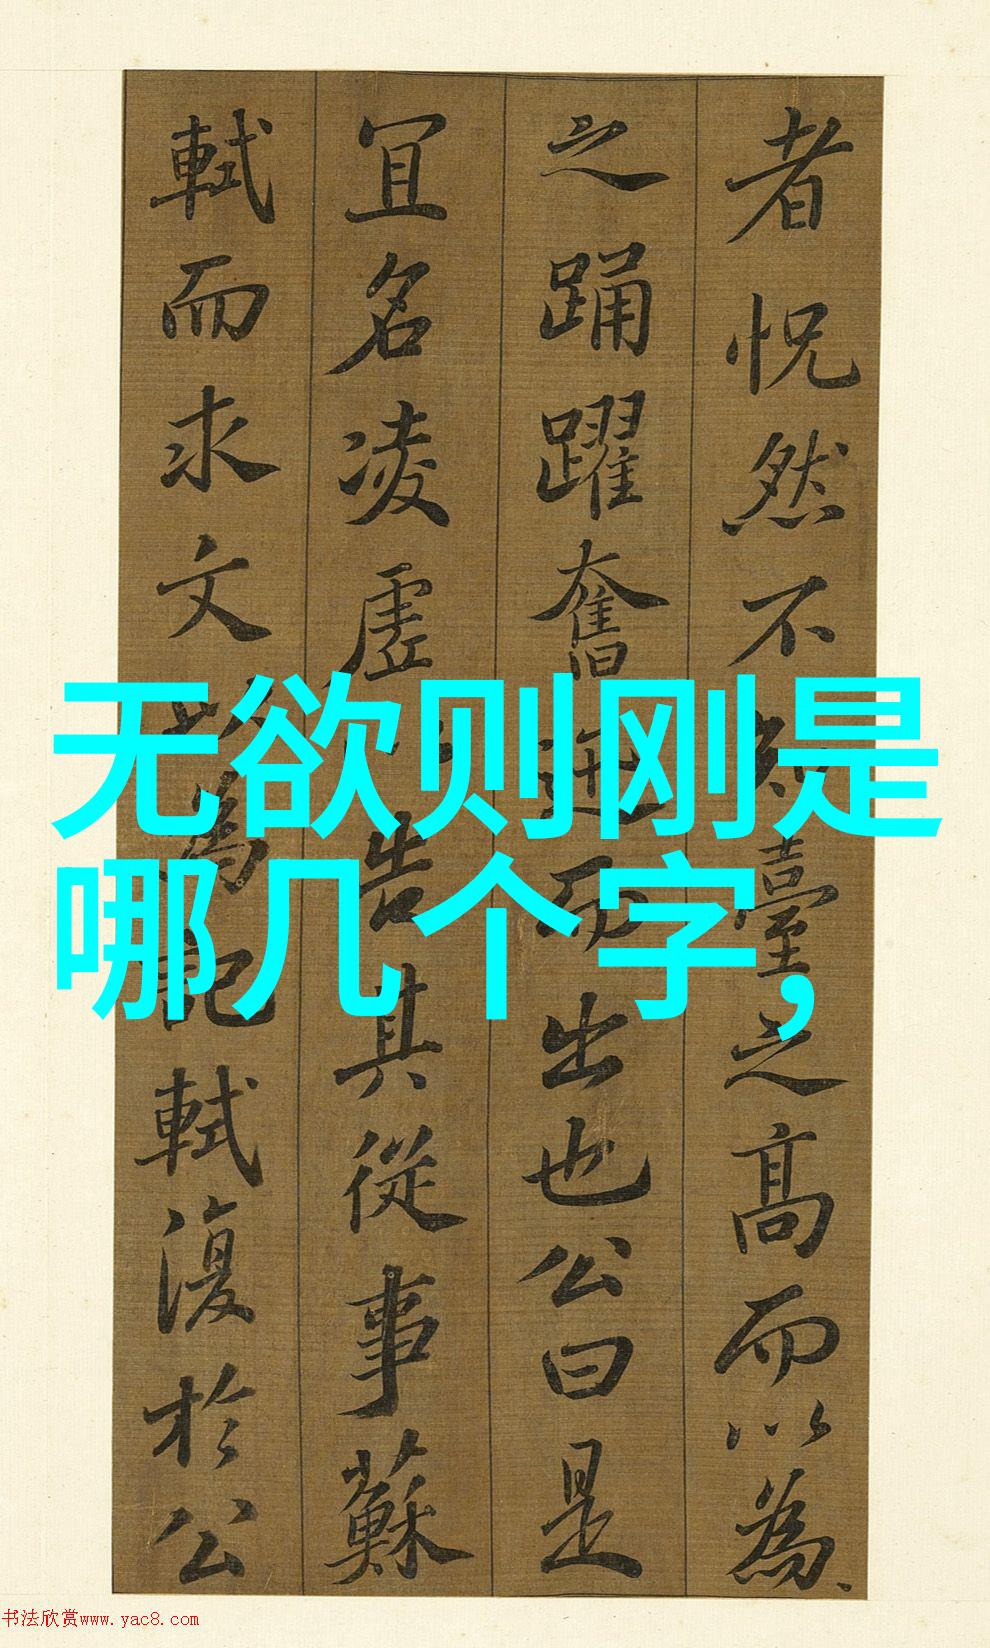 者怳然不知臺之高而以為
之踊躍奮迅而出也公曰是
冝名凌虛以告其從事蘇
軾而求文以為記軾復於公
无欲则刚是
哪几个字，
书法欣赏www.yac8.com